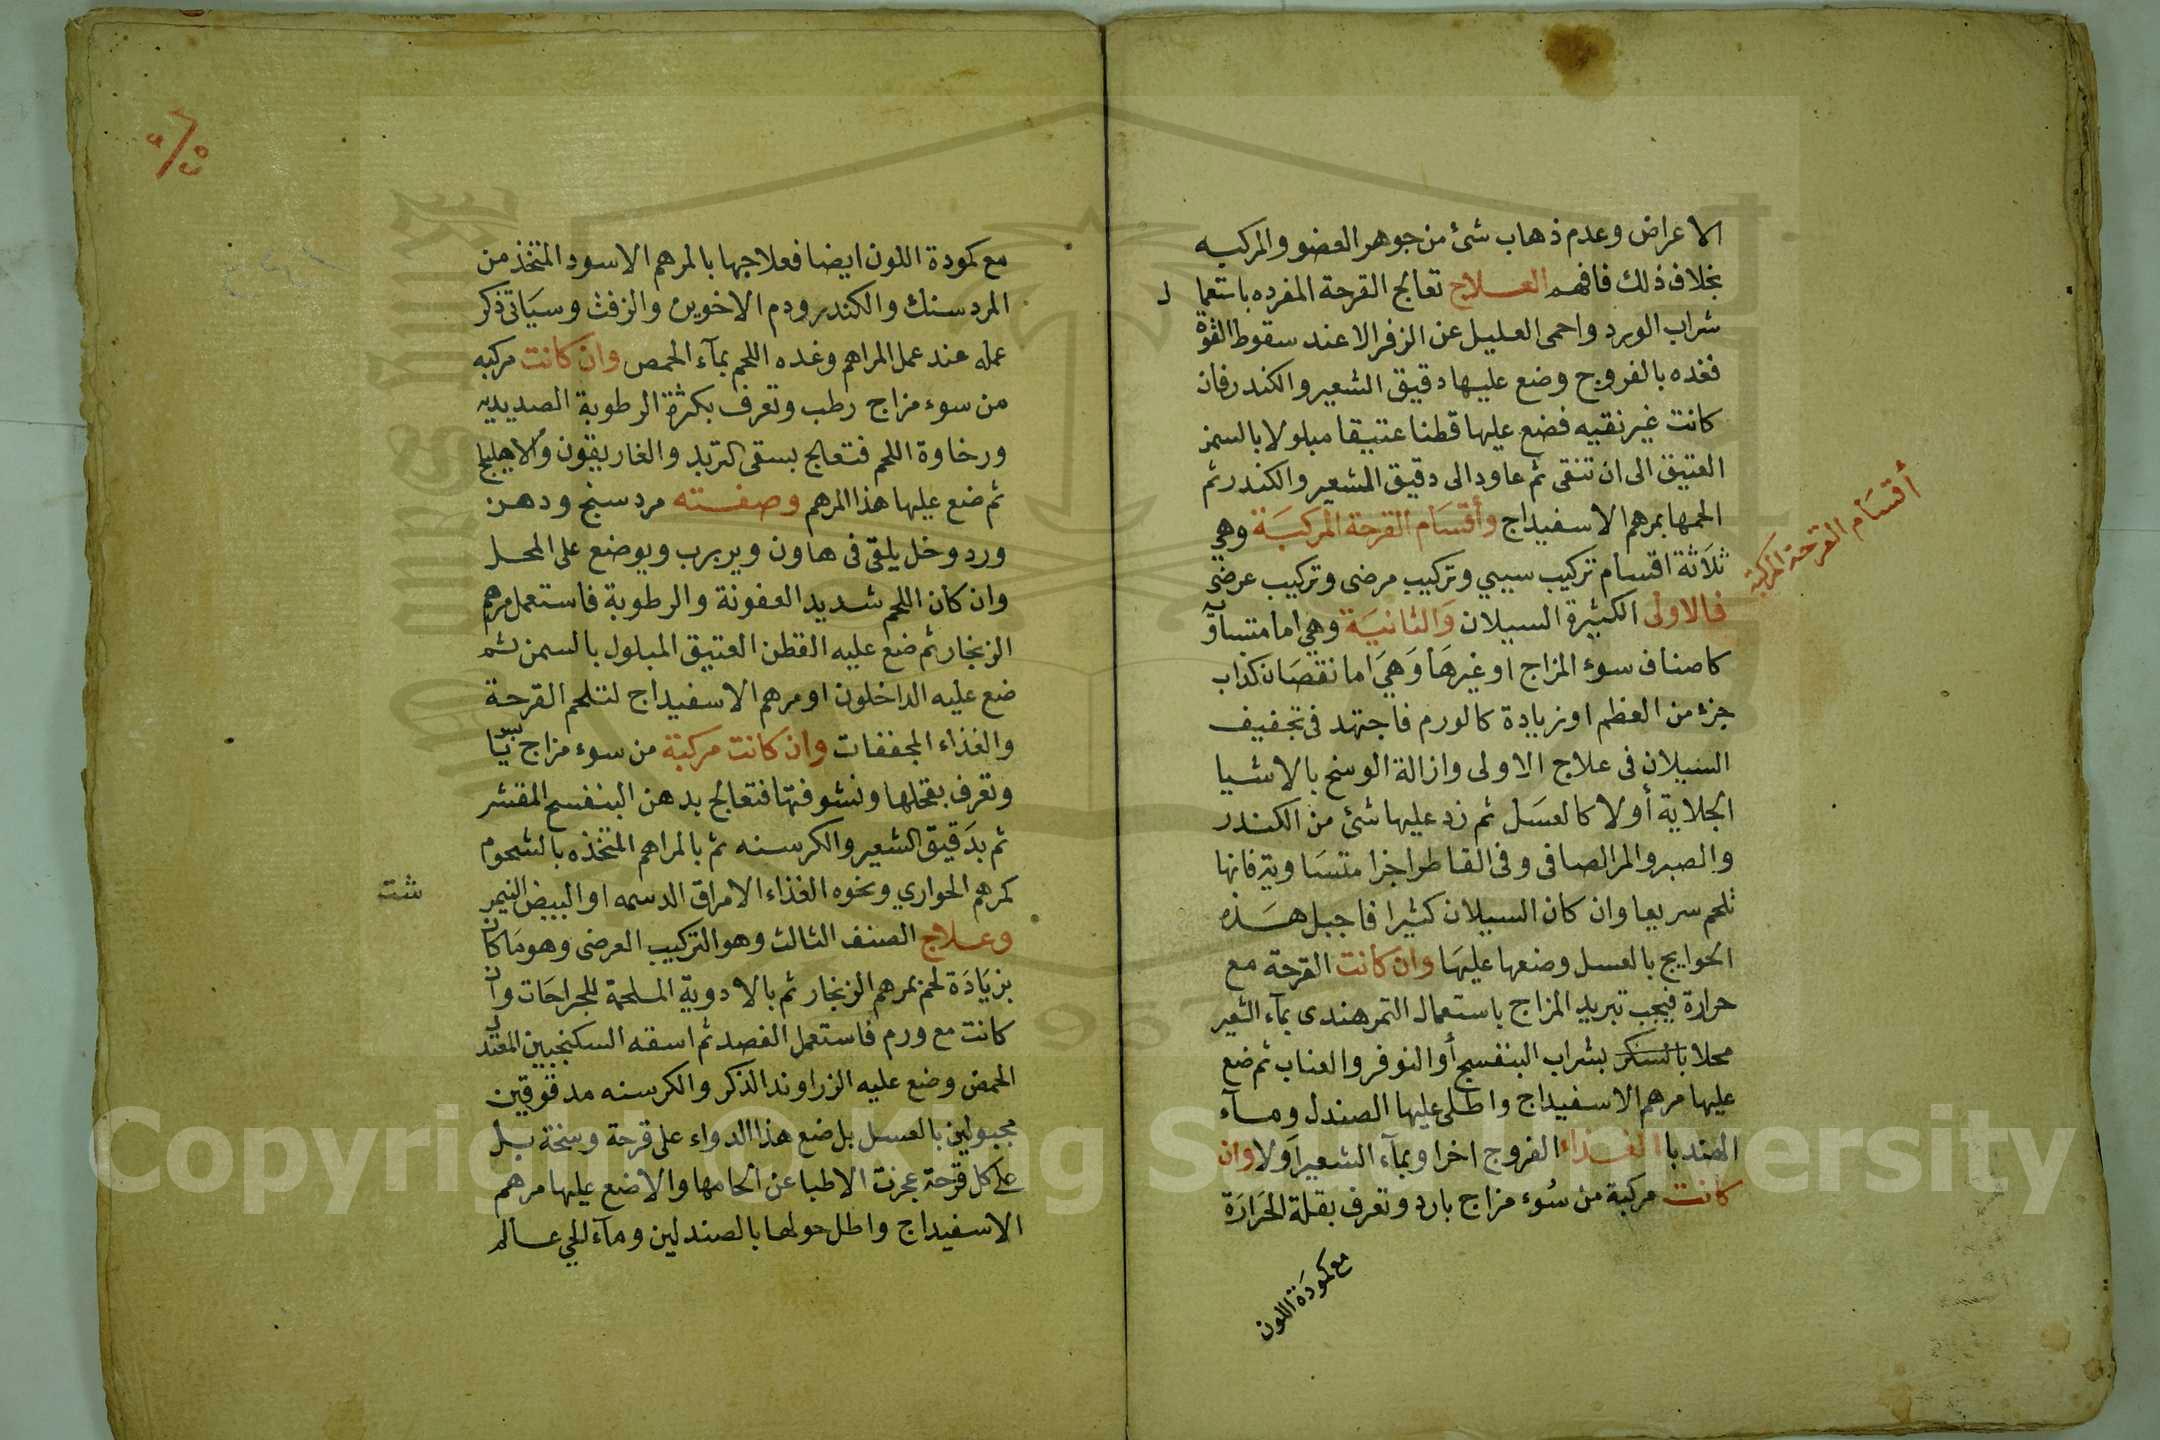 الاعراض وعدم ذهاب شئ من جوهر العضو والمركبه
بخلاف ذلك فافهم العلاج تعالج القرحة المفرده باستعما ل
شراب الورد واحمى العليل عن الزفر الا عند سقوط القوة
فغذه بالفروج وضع عليها دقيق الشعير والكندر فان
كانت غير نقيه فضع عليها قطنا عتيقا مبلولا بالسمن
العتيق الى ان تنقى ثم عاود الى دقيق الشعير والكندر ثم
الحمها بمرهم الاسفيداج وأقسَام القرحة المركبَة وهي
ثلاَثة اقسام تركيب سببي وتركيب مرضى وتركيب عرضى
أقسَام القرحة المركبة
فالاولى الكثيرة السيلان وَالثانيَة وهي اما متساوية
كاصناف سوء المزاج او غيرهَا وَهيَ اما نقصَان كذاب
جزء من العظم او زيادة كالورم فاجتهد فى تجفيف
السيلان فى علاج الاولى وازالة الوسخ بالاشيا
الجلاية أولا كالعسَل ثم زد عليها شئ من الكندر
والصبر والمر الصافى وفى القاطر اجزا متسَاوية فانها
تلحم سريعا وان كان السيلان كثيرا فاجبل هَذه
الحوايج بالعسل وضعها عليهَا وان كانت القرحة مع
حرارة فيجب تبريد المزاج باستعمال التمر هندى بمآء الشعير
محلا بالسكر بشراب البنفسج أو النوفر والعناب ثم ضع
عليها مرهم الاسفيداج واطلى عليها الصندل ومآء
الهندبا الغذاء الفروج اخرا وبمآء الشعير أولا وان
كانت مركبة من سُوء مزاج بارد وتعرف بقلة الحَرارَة
مع كمودَة اللون
مع كمودة اللون ايضا فعلاجها بالمرهم الاسود المتخذ من
المردسنك والكندر ودم الاخوين والزفت وسيَاتى ذكر
عمله عند عمل المراهم وغده اللحم بمآء الحمص وان كانت مركبه
من سوء مزاج رطب وتعرف بكثرة الرطوبة الصديديه
ورخاوة اللحم فتعالج بسقى التربد والغاريقون والاهليلج
ثم ضع عليها هذا المرهم وصفته مردسنج ودهن
ورد وخل يلقى فى هاون ويربرب ويوضع على المحل
وان كان اللحم شديد العفونة والرطوبة فاستعمل مرهم
الزنجار ثم ضع عليه القطن العتيق المبلول بالسمن ثم
ضع عليه الداخلون او مرهم الاسفيداج لتلحم القرحة
والغذاء المجففات وان كانت مركبة من سوء مزاج يابس
وتعرف بقحلها ونشوفتها فتعالج بدهن البنفسج المقشر
ثم بدَقيق الشعير والكرسنه ثم بالمراهم المتخذه بالشحوم
كمرهم الحواري ونحوه الغذاء الامراق الدسمه او البيض النيمر شت
وعلاج الصنف الثالث وهو التركيب العرضى وهو مَا كان
بزيَادَة لحم بمرهم الزنجار ثم بالادوية الملحمة للجراحَات وان
كانت مع ورم فاستعمل الفصد ثم اسقه السكنجبين المعتدل
الحمض وضع عليه الزراوند الذكر والكرسنه مدقوقين
مجبولين بالعسل بل ضع هذا الدواء على قرحة وسخة بل
على كل قرحة عجزت الاطبا عن الحامها والا ضع عليها مرهم
الاسفيداج واطل حولها بالصندلين ومآء الحي عالم
Copyright © King Saud University